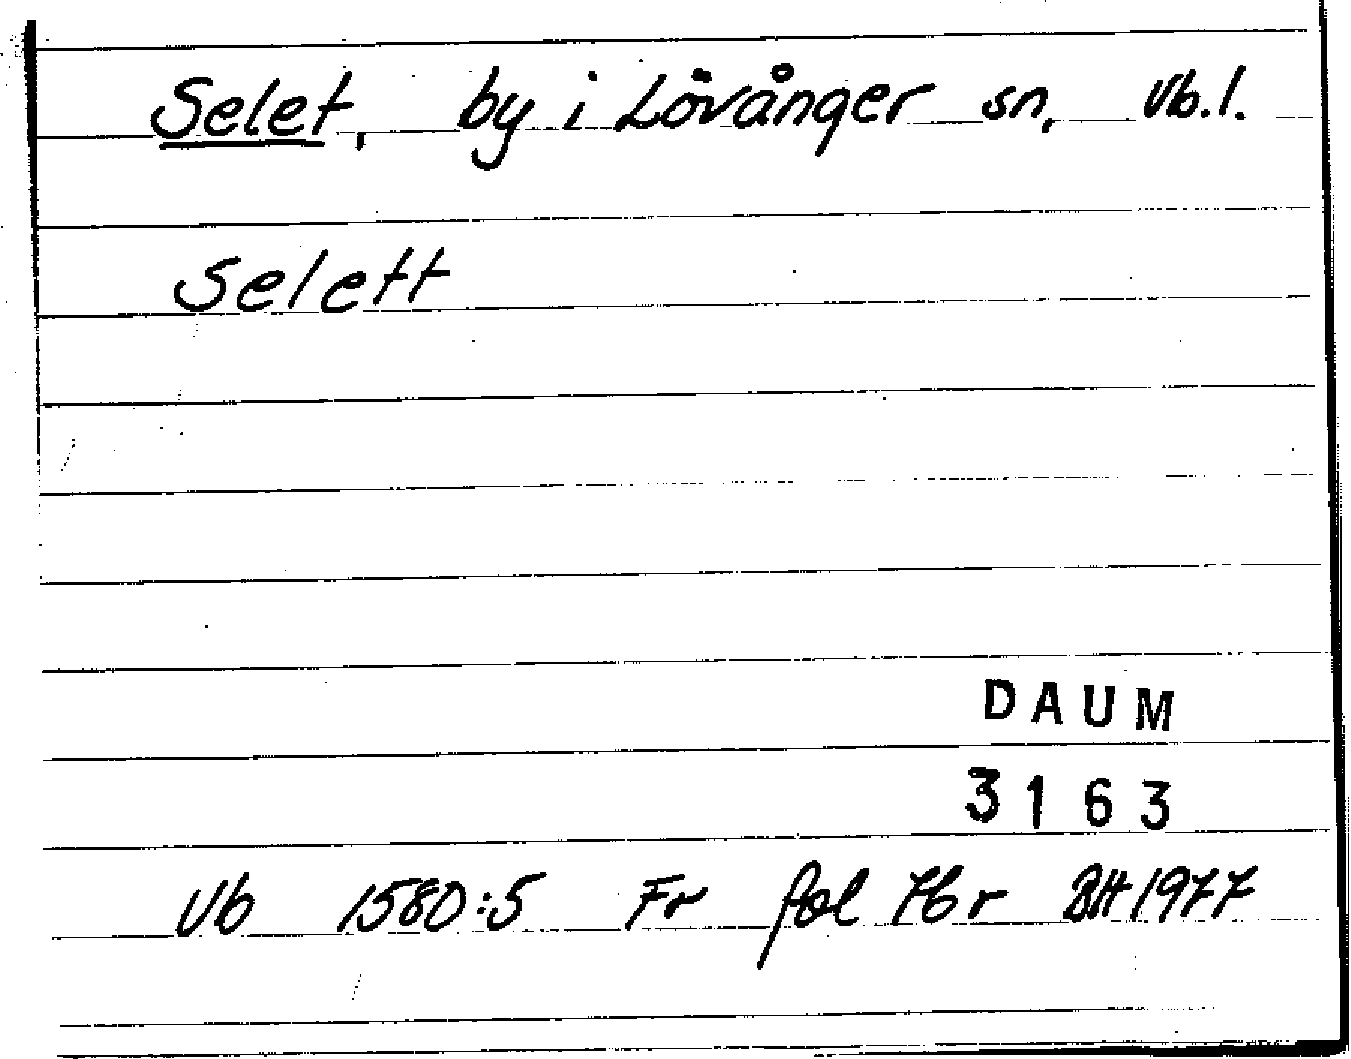 Selet, by i Lövånger sn, Vb.l.
Selett
DAUM
3163
Vb 1580:5 Fr fol 76 r BH 1977